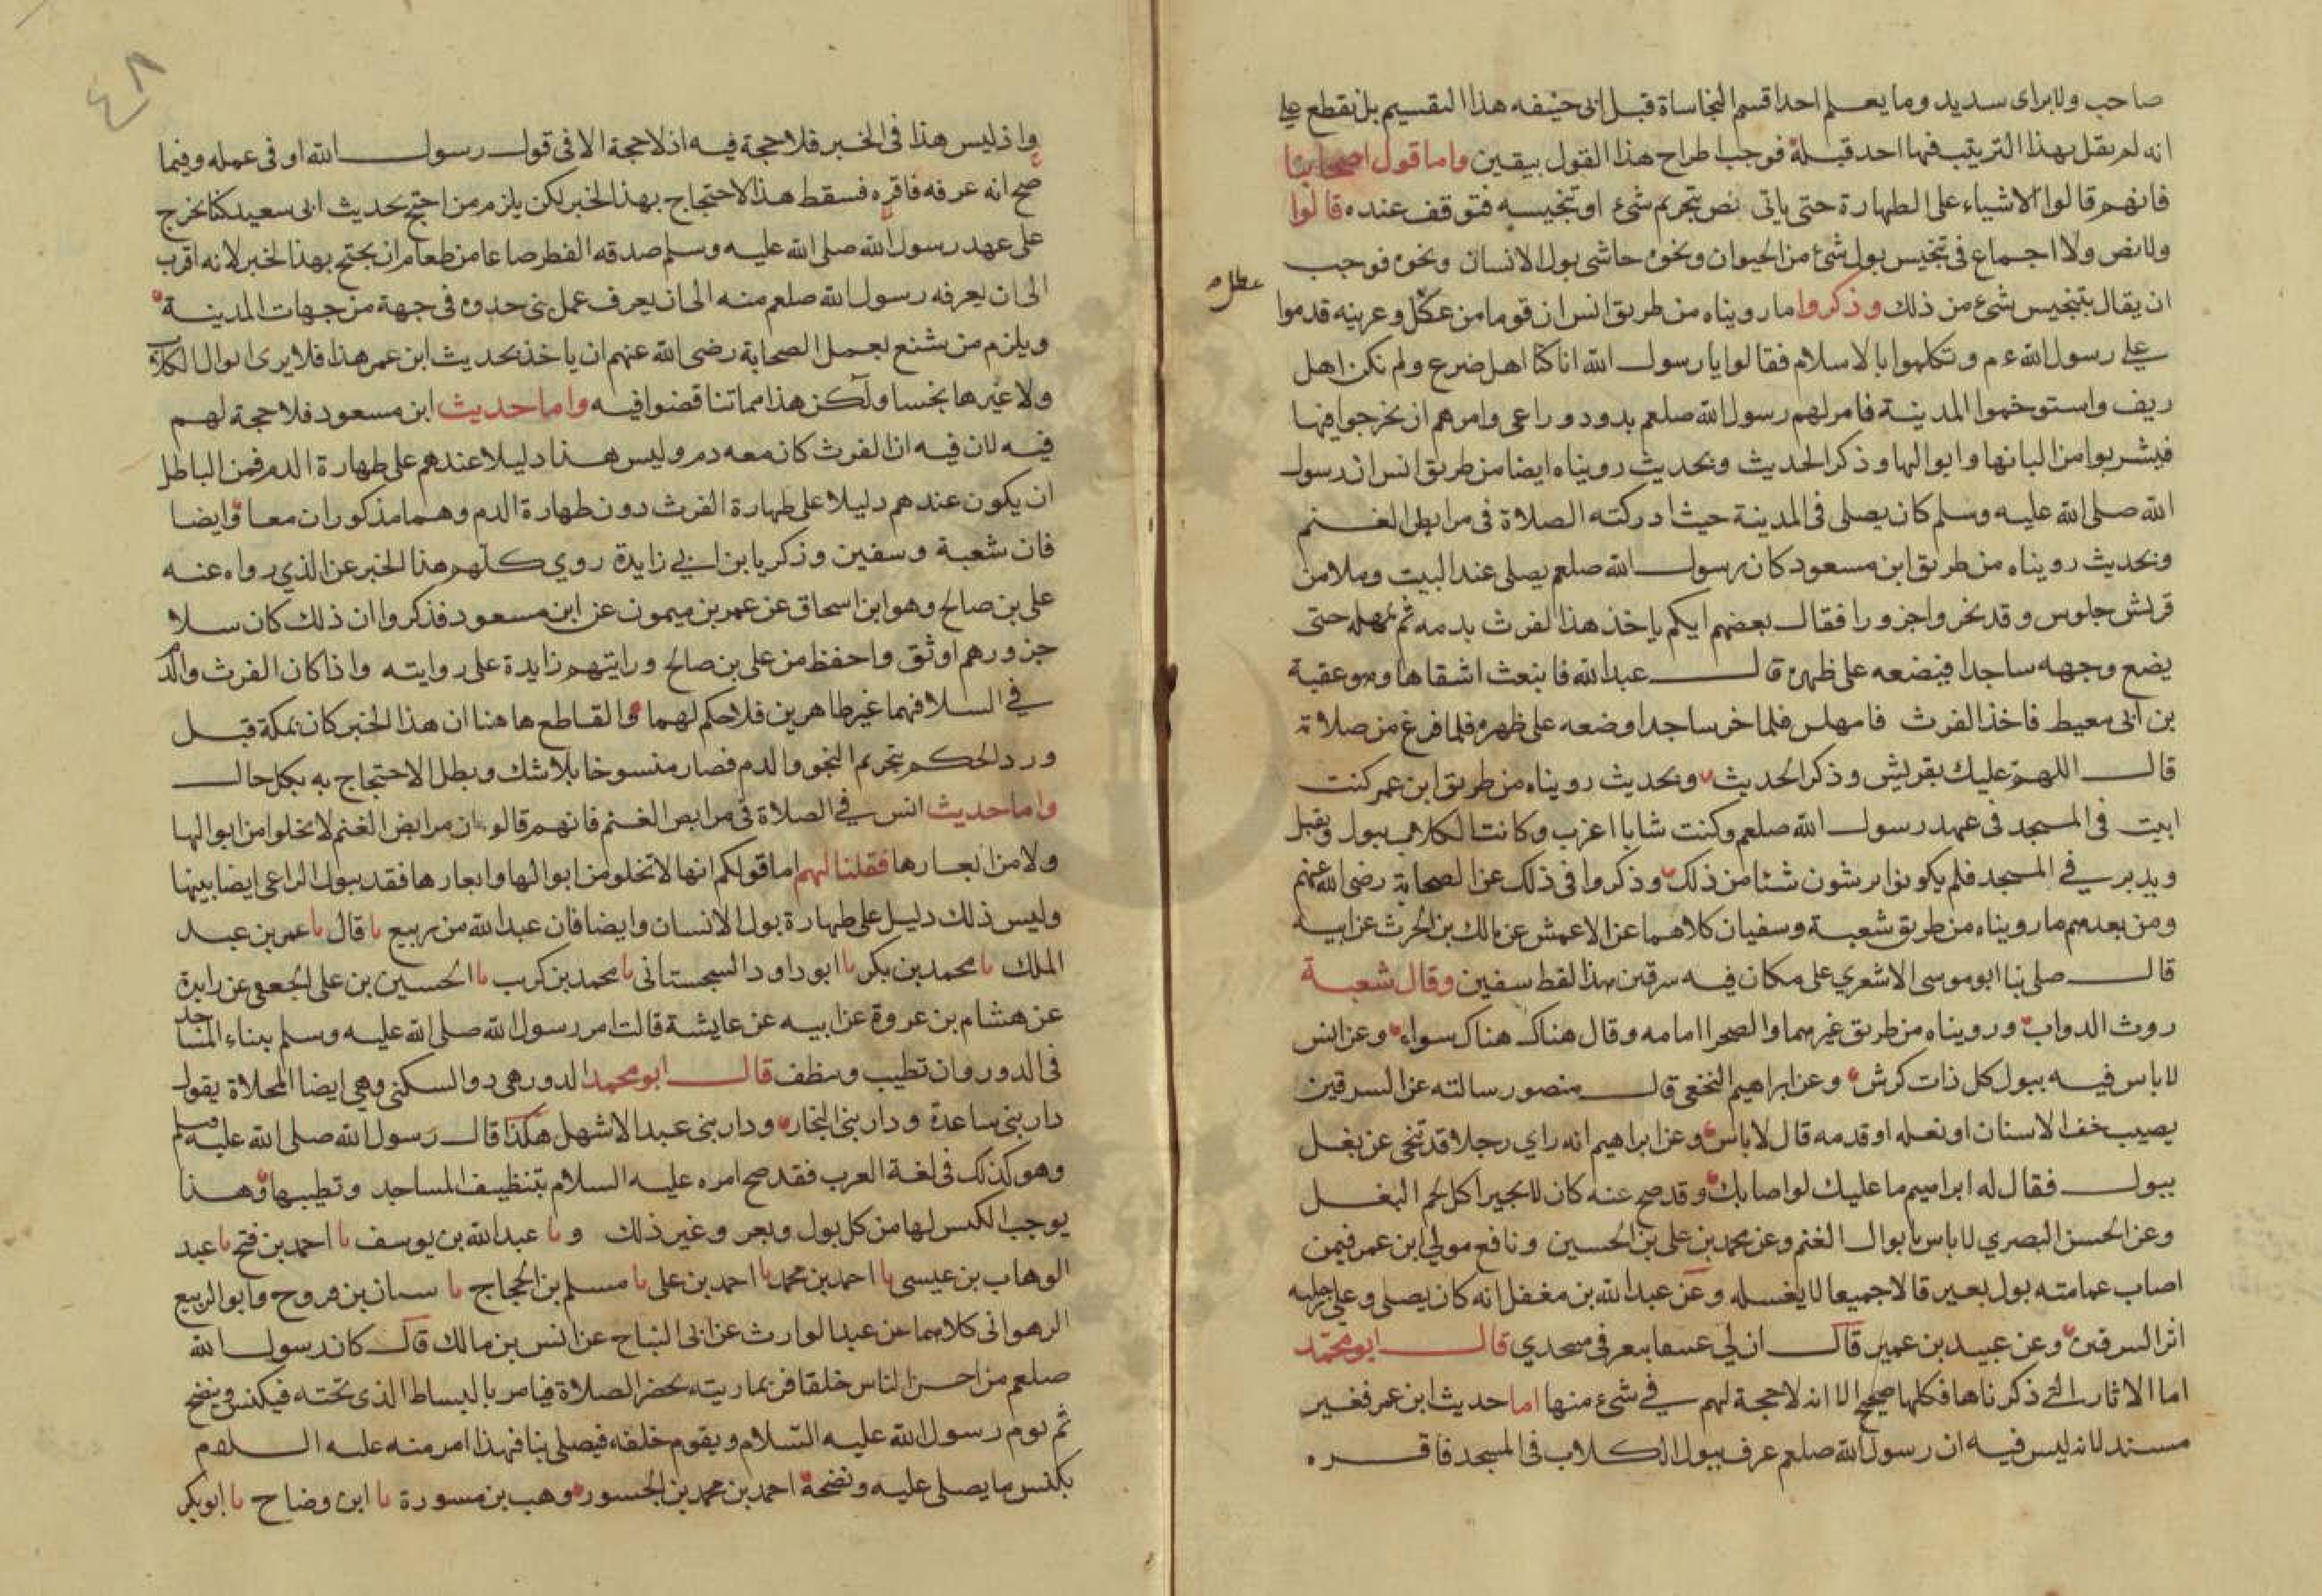 صاحب ولا براى سديد وما يعلم احدا قسم النجاساة قبل ابى حنيفه هذا التقسيم بل نقطع على
انه لم يقل بهذا الترتيب فيها احد قبله فوجب اطراح هذا القول بيقين واما قول اصحابنا
فانهم قالوا الاشياء على الطهارة حتى ياتى نص بتحريم شئ او تنجيسه فتوقف عنده قالوا
ولا نص ولا اجماع فى تنجيس بول شئ من الحيوان ونجوه حاشى بول الانسان ونجوه فوجب
ان يقال بتنجيس شئ من ذلك وذكروا ما رويناه من طريق انس ان قوما من عكل وعرينه قدموا
على رسول الله ءم وتكلموا بالاسلام فقالوا يا رسول الله انا كنا اهل ضرع ولم نكن اهل
ريف واستوخموا المدينة فامر لهم رسول الله صلعم بدود وراعى وامرهم ان يخرجوا فيها
فيشربوا من البانها وابوالها وذكر الحديث وبحديث رويناه ايضا من طريق انس ان رسول
الله صلى الله عليه وسلم كان يصلى فى المدينة حيث ادركته الصلاة فى مرابض الغنم
وبحديث رويناه من طريق ابن مسعود كان رسول الله صلعم يصلى عند البيت وملا من
قريش جلوس وقد نحروا جزورا فقال بعضهم ايكم ياخذ هذا الفرث بدمه ثم يمهله حتى
يضع وجهه ساجدا فيضعه على ظهره قال عبد الله فانبعث اشقاها وهو عقبة
بن ابى معيط فاخذ الفرث فامهله فلما خر ساجدا وضعه على ظهره فلما فرغ من صلاته
قال اللهم عليك بقريش وذكر الحديث وبحديث رويناه من طريق ابن عمر كنت
ابيت فى المسجد فى عهد رسول الله صلعم وكنت شابا اعزب وكانت الكلاب تبول وتقبل
ويدبر في المسجد فلم يكونوا يرشون شئا من ذلك وذكروا فى ذلك عن الصحابة رضى الله عنهم
ومن بعدهم ما رويناه من طريق شعبة وسفيان كلاهما عن الاعمش عن مالك بن الحرث عن ابيه
قال صلى بنا ابو موسى الاشعري على مكان فيه سرقين هذا لفظ سفين وقال شعبة
روث الدواب ورويناه من طريق غيرهما والصحرا امامه وقال هناك هناك سواء وعن انس
لا باس فيه ببول كل ذات كرش وعن ابراهيم النخعى قال منصور سالته عن السرقين
يصيب خف الانسان او نعله او قدمه قال لا باس وعن ابراهيم انه راي رجلا قد تنحى عن بغل
يبول فقال له ابراهيم ما عليك لو اصابك وقد صح عنه كان لا يجيز اكل لحم البغل
وعن الحسن البصري لا باس بابوال الغنم وعن محمد بن على بن الحسين ونافع مولى ابن عمر فيمن
اصاب عمامته بول بعير قالا جميعا لا يغسله وعن عبد الله بن مغفل انه كان يصلى وعلى رجليه
اثر السرقين وعن عبيد بن عمير قال ان لي عنيقا يبعر فى مسجدي قال ابو محمد
اما الاثار التى ذكرناها فكلها صحيح الا انه لا حجة لهم في شئ منها اما حديث ابن عمر فغير
مسند لانه ليس فيه ان رسول الله صلعم عرف ببول الكلاب فى المسجد فاقره
مطلب
٤٨
واذ ليس هذا فى الخبر فلا حجة فيه اذ لا حجة الا فى قول رسول الله او فى عمله وفيما
صح انه عرفه فاقره فسقط هذا الاحتجاج بهذا الخبر لكن يلزم من احتج بحديث ابى سعيد كنا نخرج
على عهد رسول الله صلى الله عليه وسلم صدقه الفطر صاعا من طعام ان يحتج بهذا الخبر لانه اقرب
الى ان يعرفه رسول الله صلعم منه الى ان يعرف عمل بنى خدره فى جهة من جهات المدينة
ويلزم من شنع بعمل الصحابة رضى الله عنهم ان ياخذ بحديث ابن عمر هذا فلا يرى ابوال الكلاب
ولا غيرها نجسا ولكن هذا مما تناقضوا فيه واما حديث ابن مسعود فلا حجة لهم
فيه لان فيه ان الفرث كان معه دم وليس هذا دليلا عندهم على طهارة الدم فمن الباطل
ان يكون عندهم دليلا على طهارة الفرث دون طهارة الدم وهما مذكوران معا وايضا
فان شعبة وسفين وذكريا بن ابي زايدة روي كلهم هذا الخبر عن الذي رواه عنه
على بن صالح وهو ابن اسحاق عن عمر بن ميمون عن ابن مسعود فذكروا ان ذلك كان سلا
جزور هم اوثق واحفظ من على بن صالح ورايتهم زايدة على روايته واذا كان الفرث والدم
في السلا فهما غير طاهرين فلا حكم لهما والقاطع هاهنا ان هذا الخبر كان بمكة قبل
ورد الحكم بتحريم النجو والدم فصار منسوخا بلا شك وبطل الاحتجاج به بكل حال
واما حديث انس في الصلاة فى مرابض الغنم فانهم قالو ان مرابض الغنم لا تخلوا من ابوالها
ولا من ابعارها فقلنا لهم اما قولكم انها لا تخلو من ابوالها وابعارها فقد يبول الراعى ايضا بينها
وليس ذلك دليل على طهارة بول الانسان وايضا فان عبد الله من ربيع نا قال نا عمر بن عبد
الملك نا محمد بن بكر نا ابو داود السجستانى نا محمد بن كرب نا الحسين بن على الجعفى عن زايدة
عن هشام بن عروة عن ابيه عن عايشة قالت امر رسول الله صلى الله عليه وسلم ببناء المساجد
فى الدور وان تطيب وتنظف قال ابو محمد الدور هى دو السكنى وهي ايضا المحلاة يقول
دار بنى ساعدة ودار بنى النجار ودار بنى عبد الاشهل هكذا قال رسول الله صلى الله عليه وسلم
وهو كذلك فى لغة العرب فقد صح امره عليه السلام بتنظيف المساجد وتطيبها وهذا
يوجب الكنس لها من كل بول وبعر وغير ذلك ونا عبد الله بن يوسف نا احمد بن فتح نا عبد
الوهاب بن عيسى نا احمد بن محمد نا احمد بن على نا مسلم بن الحجاج نا سنان بن فروح وابو الربيع
الزهوانى كلاهما عن عبد الوارث عن ابى التياح عن انس بن مالك قال كان رسول الله
صلعم من احسن الناس خلقا فربما رايته تحضر الصلاة فيامر بالبساط الذى تحته فيكنس وينضح
ثم يوم رسول الله عليه السلام ويقوم خلفه فيصلى بنا فهذا امر منه عليه السلام
بكنس ما يصلى عليه ونضحه احمد بن محمد بن الجسور وهب بن مسورة نا ابن وضاح نا ابو بكر